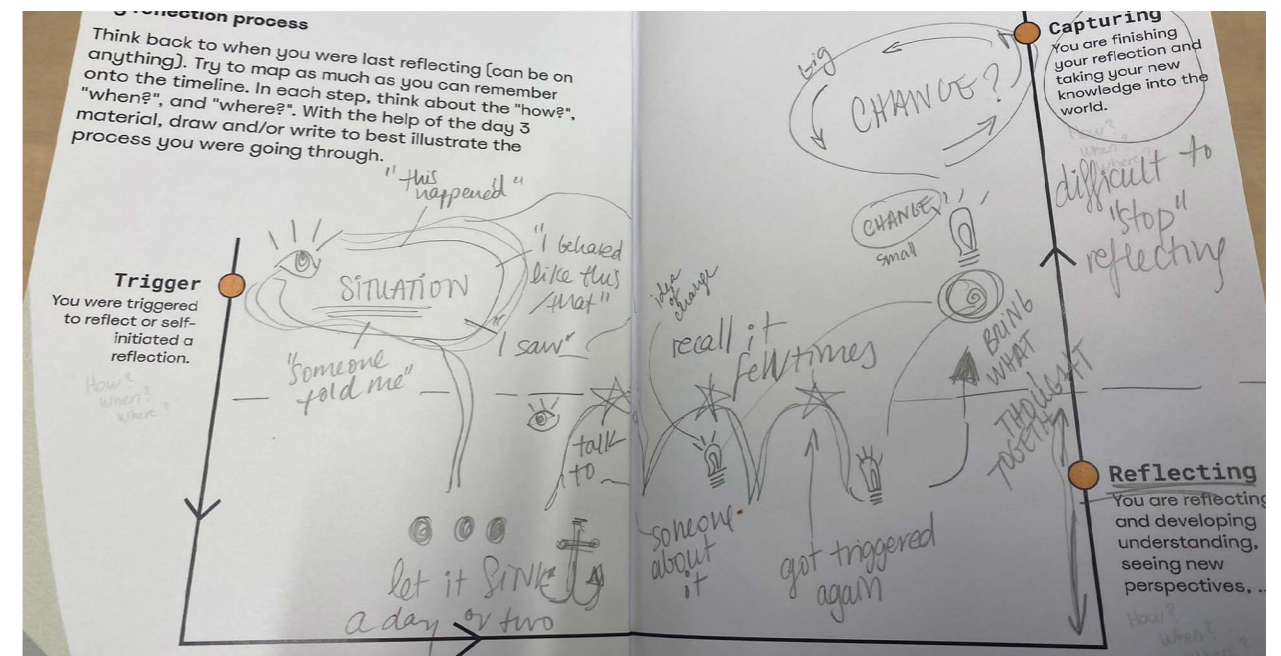 reflection process
Think back to when you were last reflecting (can be on
anything). Try to map as much as you can remember
onto the timeline. In each step, think about the "how?",
"when?", and "where?". With the help of the day 3
material, draw and/or write to best illustrate the
process you were going through.
Trigger
You were triggered
to reflect or self-
initiated a
reflection.
How?
When?
Where?
"this
happened"
SITUATION
"I behaved
like this
/that"
I saw"
"someone
told me"
let it SINK
a day or two
talk
to
someone
about
it
idea
of
change
recall it
few times
got triggered
again
BRING
WHAT
I
THOUGHT
TOGETHER
CHANGE
small
big
CHANGE?
Capturing
You are finishing
your reflection and
taking your new
knowledge into the
world.
How?
When
Where?
difficult to
"stop"
reflecting
Reflecting
You are reflecting
and developing
understanding,
seeing new
perspectives, ..
How?
When?
Where?